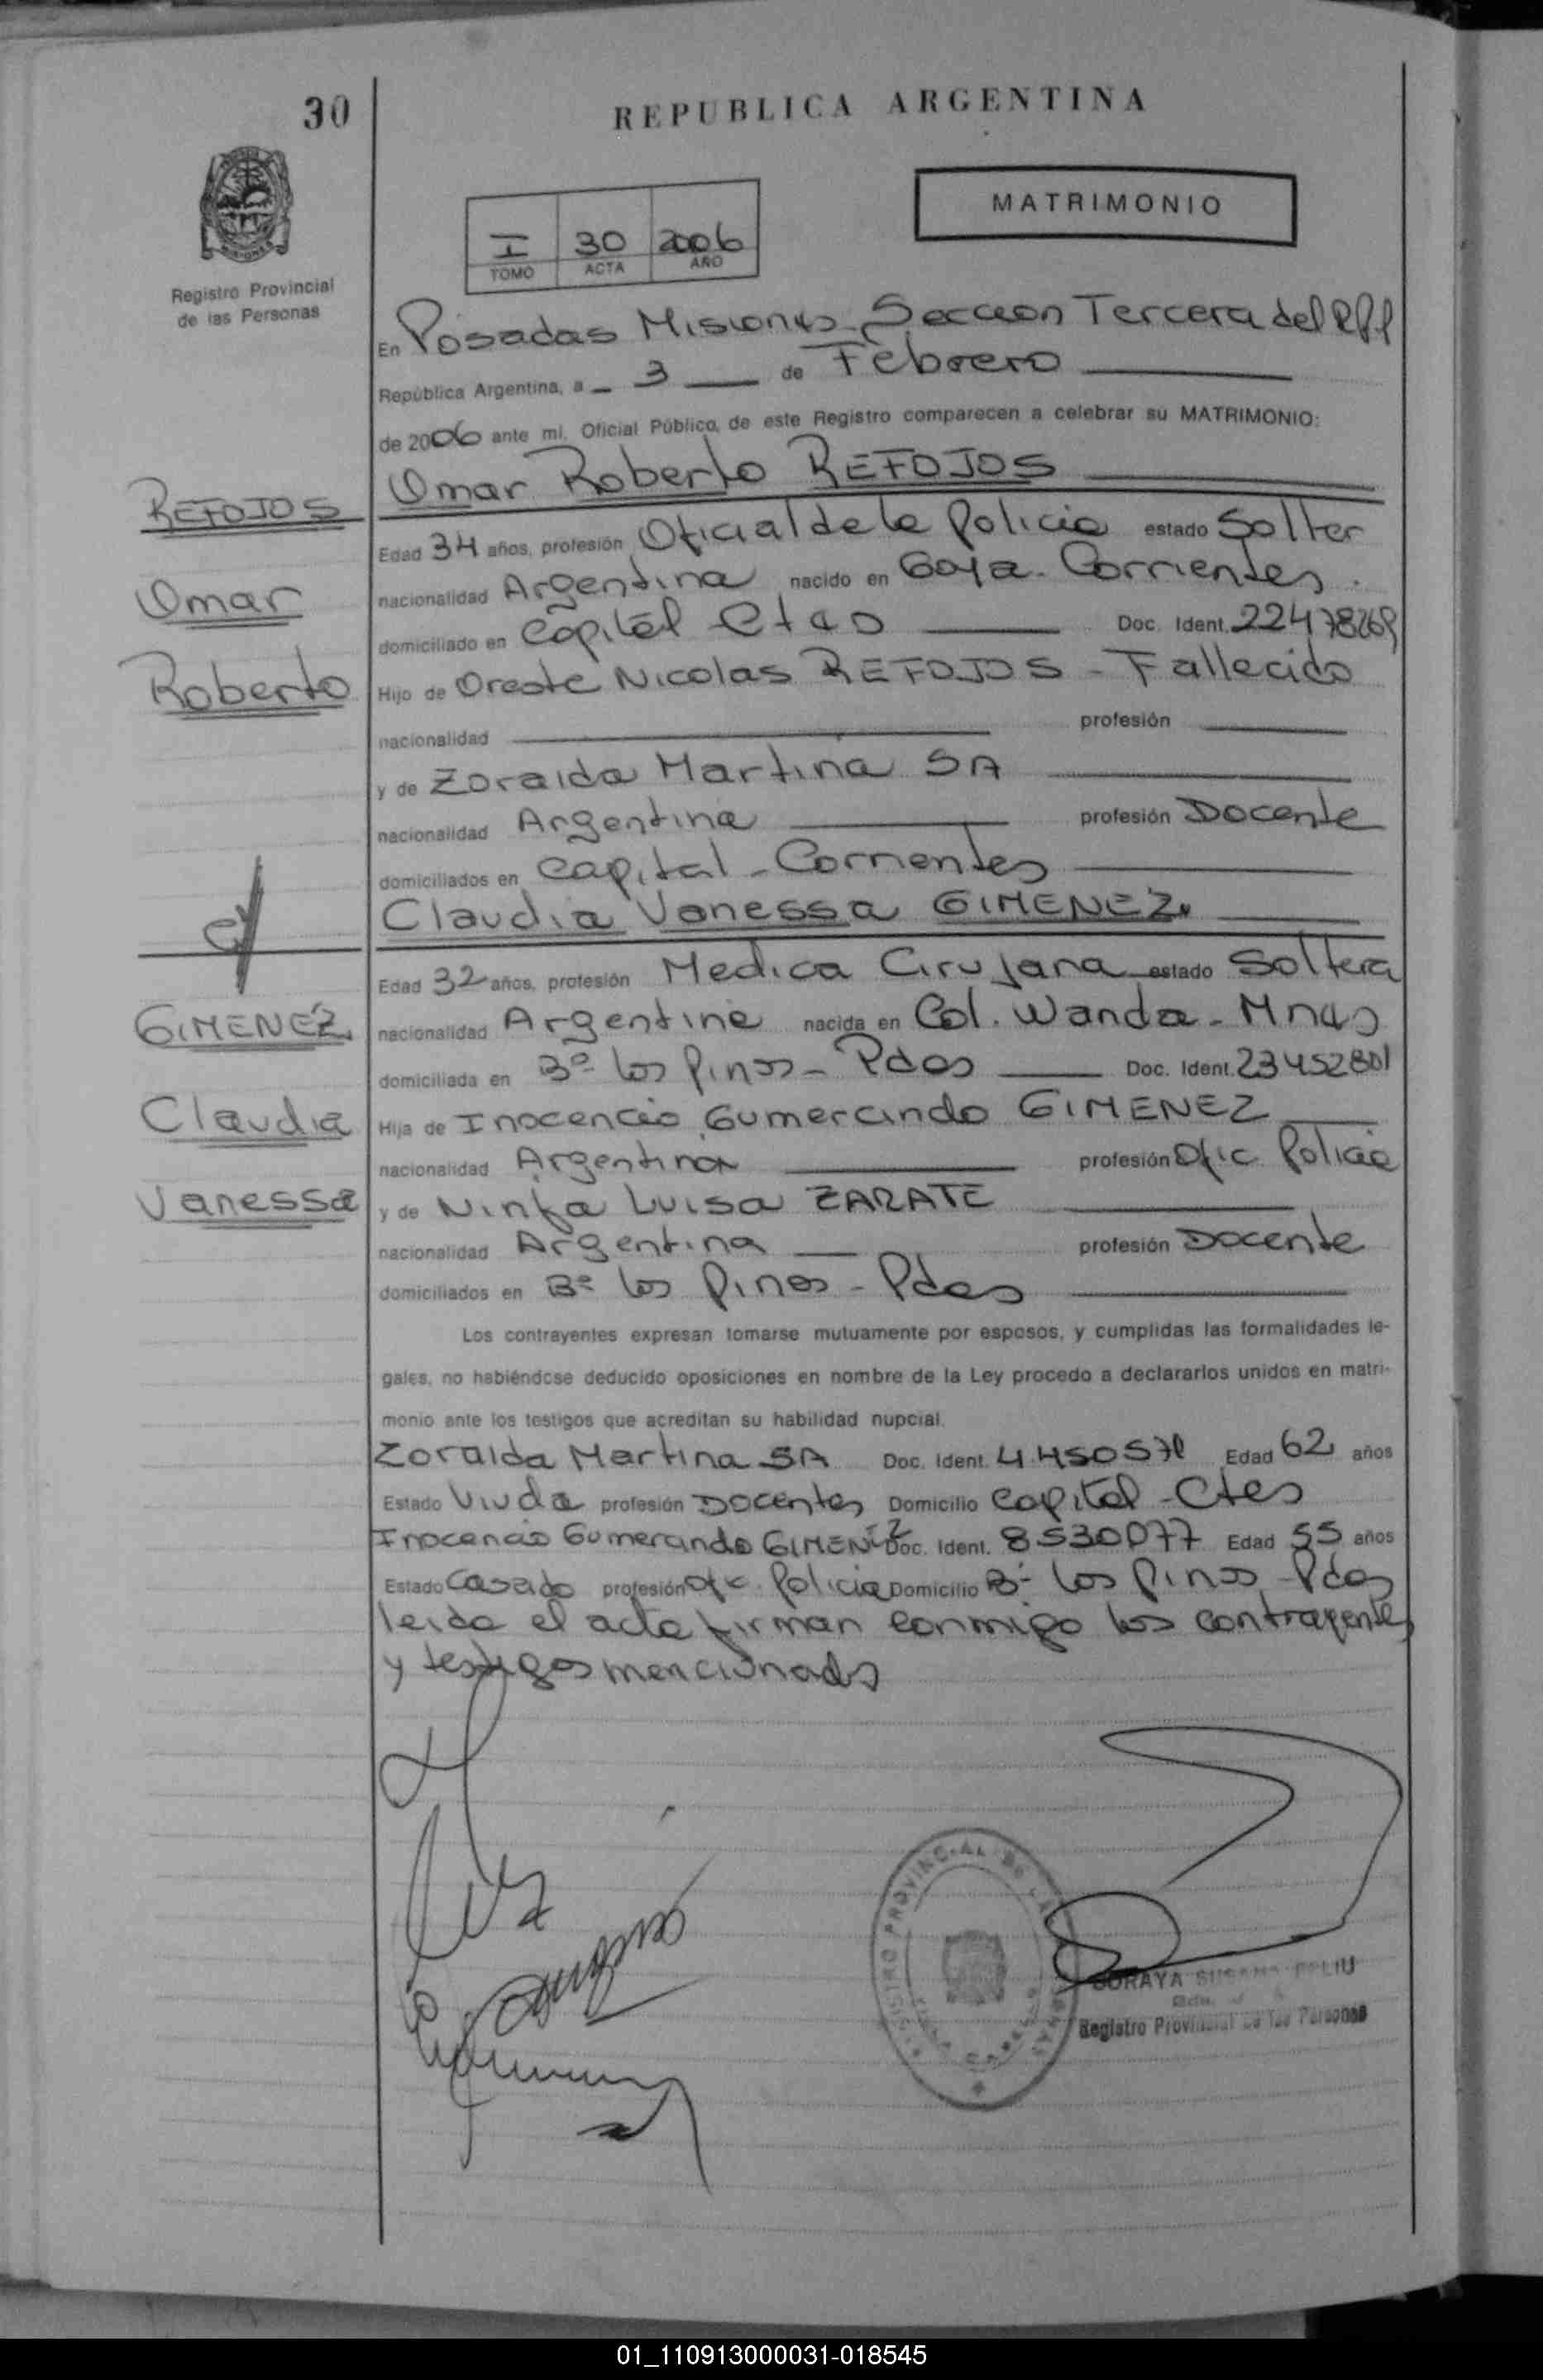 30
REPUBLICA ARGENTINA
MATRIMONIO
I 30 2006
TOMO ACTA AÑO
Registro Provincial
de las Personas
En Posadas Misiones - Seccion Tercera del RPP
República Argentina, a 3 de Febrero
de 2006 ante mí, Oficial Público, de este Registro comparecen a celebrar su MATRIMONIO:
Omar Roberto REFOJOS
REFOJOS
Edad 34 años, profesión Oficial de la Policia estado Solter
Omar
nacionalidad Argentina nacido en Goya - Corrientes.
domiciliado en Capital Ctes Doc. Ident. 22478269
Roberto
Hijo de Oreste Nicolas REFOJOS - Fallecido
nacionalidad profesión
y de Zoraida Martina SA
nacionalidad Argentina profesión Docente
domiciliados en Capital - Corrientes
Claudia Vanessa GIMENEZ
c/
Edad 32 años, profesión Medica Cirujana estado Soltera
GIMENEZ
nacionalidad Argentina nacida en Col. Wanda - Mnes
domiciliada en Bº los Pinos - Pdas Doc. Ident. 23452801
Claudia
Hija de Inocencio Gumercindo GIMENEZ
nacionalidad Argentina profesión Ofic. Policia
Vanessa
y de Ninfa Luisa ZARATE
nacionalidad Argentina profesión Docente
domiciliados en Bº los Pinos - Pdas
Los contrayentes expresan tomarse mutuamente por esposos, y cumplidas las formalidades le-
gales, no habiéndose deducido oposiciones en nombre de la Ley procedo a declararlos unidos en matri-
monio ante los testigos que acreditan su habilidad nupcial.
Zoraida Martina SA Doc. Ident. 4.450571 Edad 62 años
Estado Viuda profesión Docentes Domicilio Capital - Ctes
Inocencio Gumercindo GIMENEZ Doc. Ident. 8530077 Edad 55 años
Estado Casado profesión Ofic. Policia Domicilio Bº Los Pinos - Pdas
leida el acta firman conmigo los contrayentes
y testigos mencionados
REGISTRO PROVINCIAL DE LAS
SORAYA SUSANA
Registro Provincial de las Personas
01_110913000031-018545